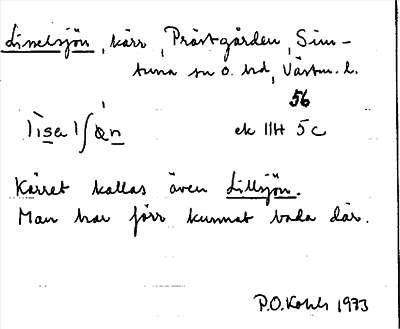 Lisselsjön, kärr, Prästgården, Sim-
tuna sn o. hd, Västm. l.
56
ek 11H 5c
Kärret kallas även Lillsjön.
Man har förr kunnat bada där.
P.O. Kohls 1973